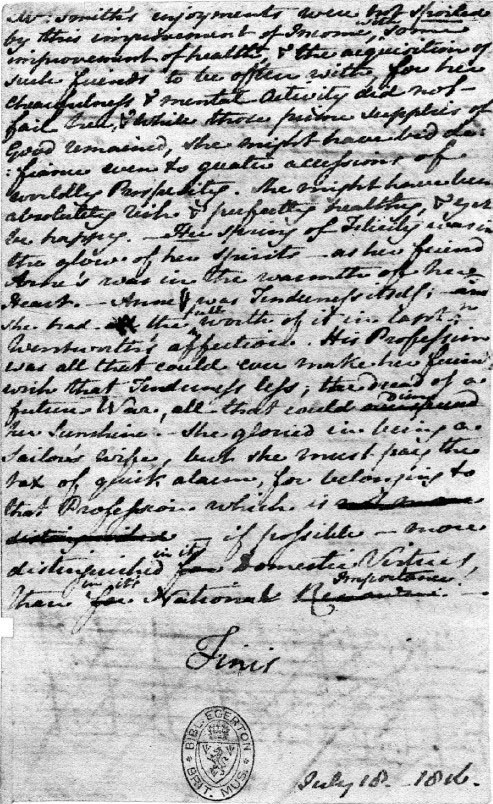 Mrs. Smith's enjoyments were not spoiled
by this improvement of Income, with some
improvement of health, & the acquisition of
such friends to be often with, for her
chearfulness & mental Activity did not
fail her, & while those prime supplies of
Good remained, she might have bid de:
:fiance even to greater accessions of
worldly Prosperity. She might have been
absolutely rich & perfectly healthy, & yet
be happy. — Her spring of Felicity was in
the glow of her spirits — as her friend
Anne's was in the warmth of her
Heart. — Anne was Tenderness itself; — and
she had the full worth of it in Captn
Wentworth's affection. His Profession
was all that could ever make her friends
wish that Tenderness less; the dread of a
future War, all that could dim
her Sunshine. — She gloried in being a
Sailor's wife, but she must pay the
tax of quick alarm, for belonging to
that Profession which is
distinguished — if possible — more
distinguished in it's for Domestic Virtues,
than in it's for National Importance. —
Finis
BIBL. EGERTON
BRIT. MUS.
July 18. 1816.